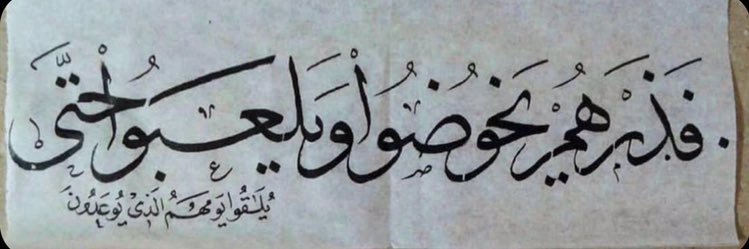 فَذَرْهُمْ يَخُوضُوا وَيَلْعَبُوا حَتَّى
يُلَاقُوا يَوْمَهُمُ الَّذِي يُوعَدُونَ